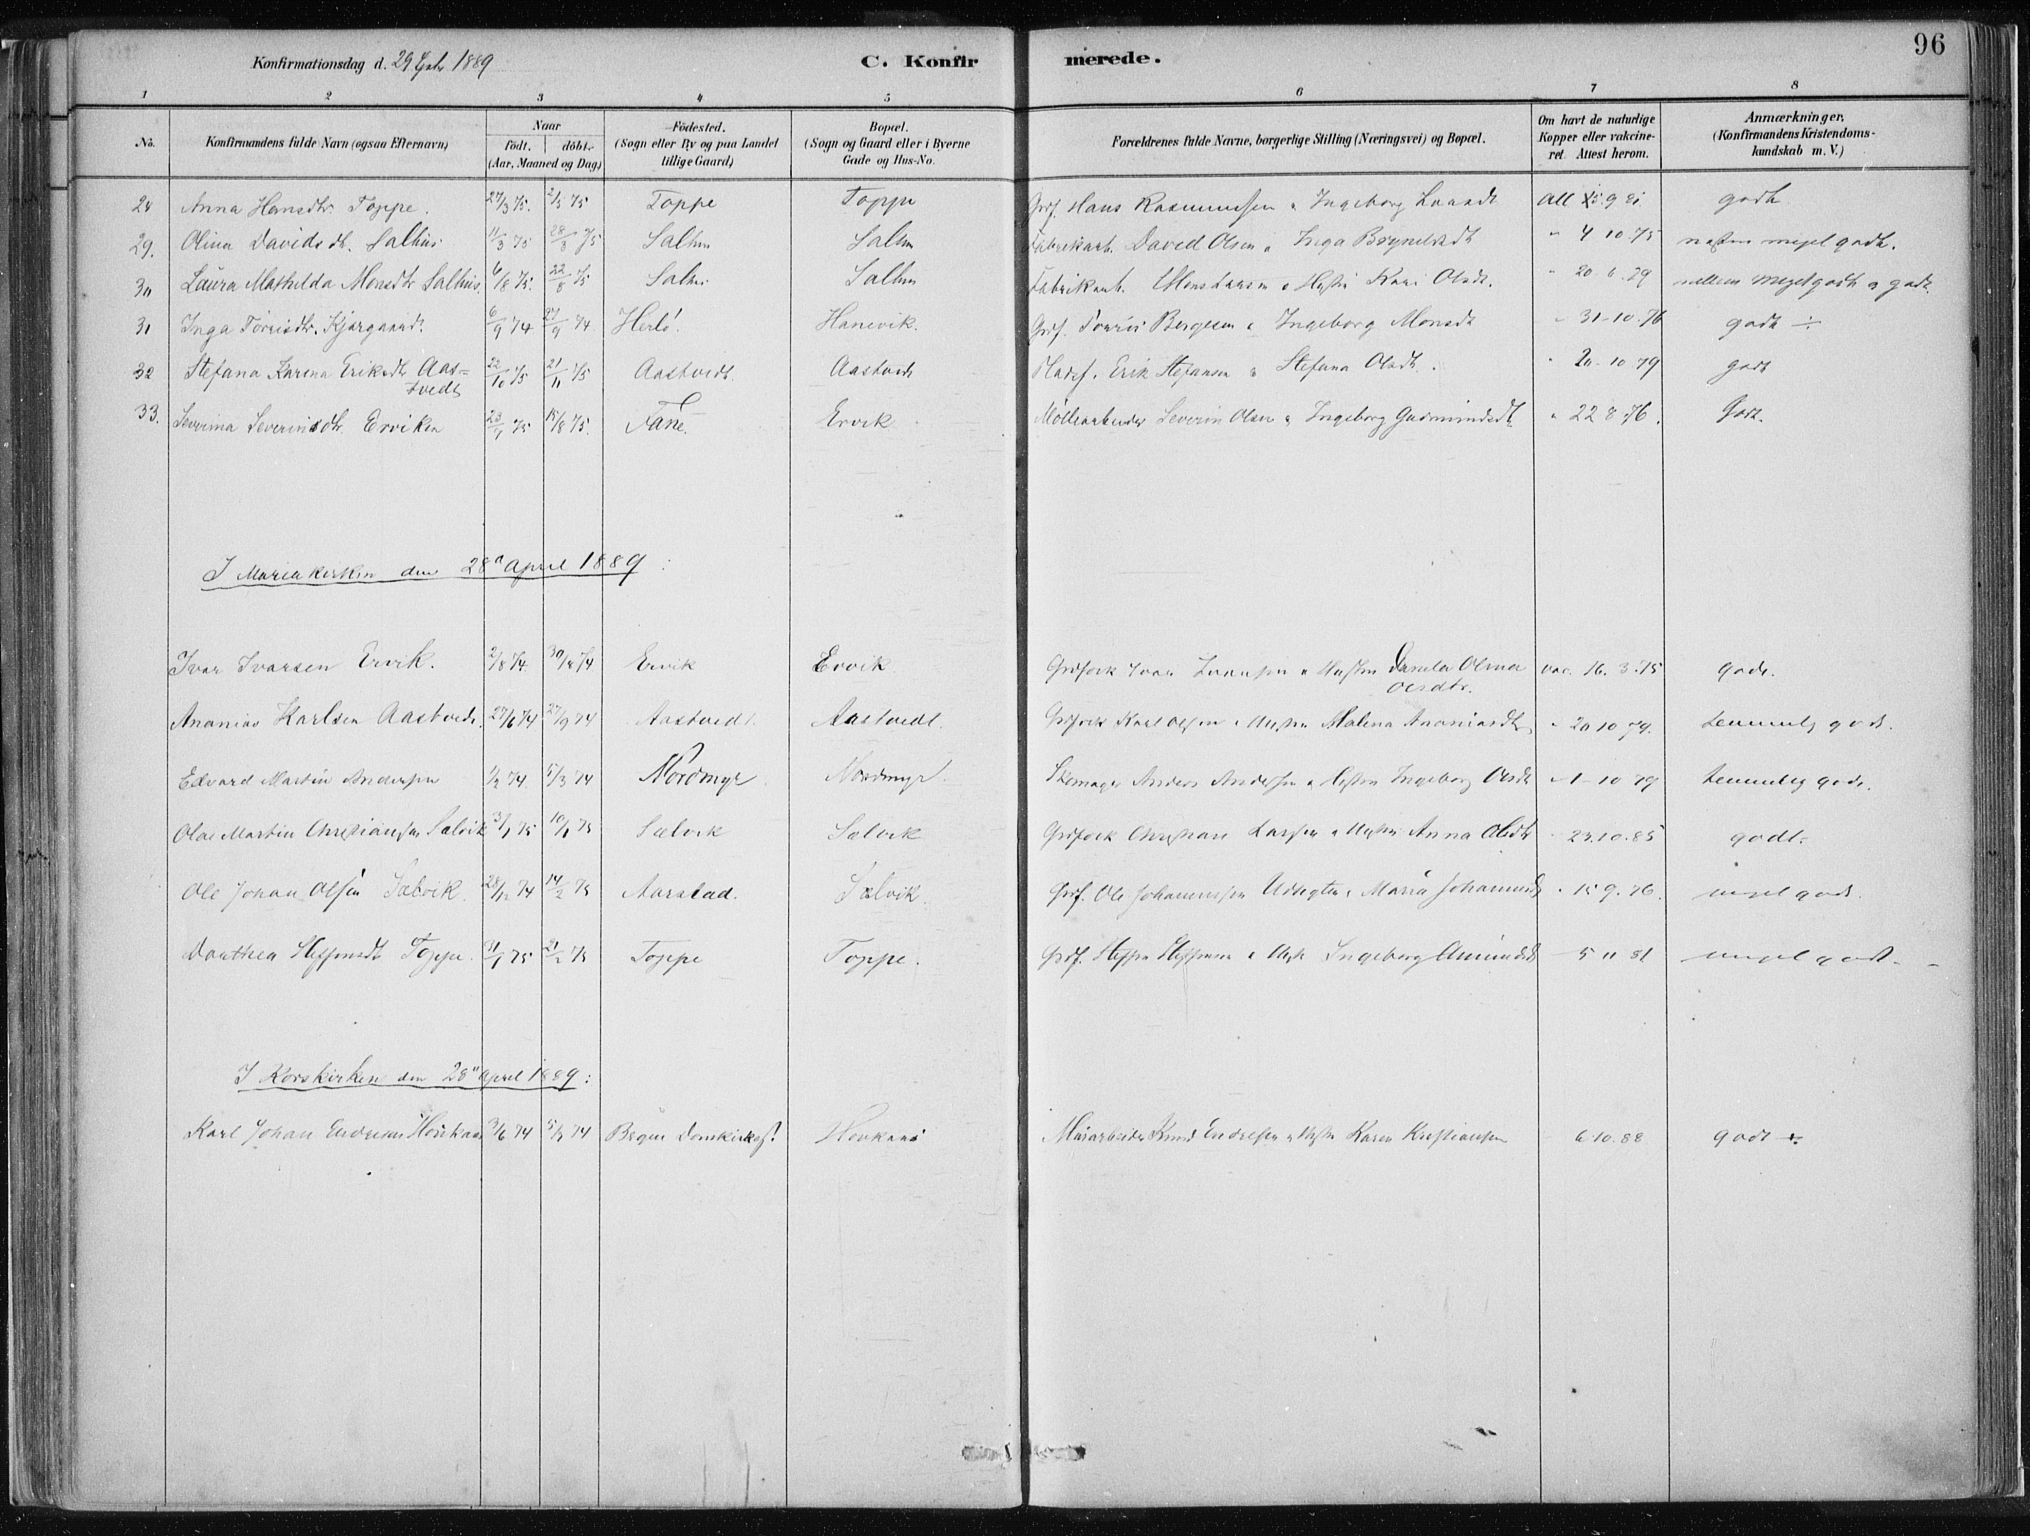 96
Konfirmationsdag d. 29 Sptr 1889 C. Konfirmerede.
1 2 3 4 5 6 7 8
No. Konfirmandens fulde Navn (ogsaa Efternavn) Naar født. døbt. (Aar, Maaned og Dag) Fødested. (Sogn eller By og paa Landet tillige Gaard) Bopæl. (Sogn og Gaard eller i Byerne Gade og Hus-No. Forældrenes fulde Navne, borgerlige Stilling (Næringsvei) og Bopæl. Om havt de naturlige Kopper eller vakcineret. Attest herom. Anmærkninger. (Konfirmandens Kristendomskundskab m. V.)
28 Anna Hansdtr Toppe. 27/3 75. 2/5 75 Toppe Toppe Grdf. Hans Rasmussen o Ingeborg godt
29. Olina Davidsdt. Salhus 11/3 75 28/3 75 Salhus Salhus Fabrikarb. David Olsen o Inga Brynelsdt " 4 10 75 næsten meget godt.
30 Laura Mathilda Monsdtr Salhus. 6/8 75. 22/8 75 Salhus Salhus Fabrikarb. Mons Larsen o Hustru Kari Olsdt. " 20-6-79 mellem meget godt o godt.
31 Inga Tørrisdtr. Kjærgaard. 6/9 74 27/9 74 Herlø. Hanevik. Grdf. Tørris Bergesen o Ingeborg Monsdt " 31-10-76 godt ÷
32 Stefana Karena Eriksdtr Aastvedt 22/10 75 21/11 75 Aastvedt. Aastvedt Pladsf. Erik Stefansen o Stefana Olsdt. " 20-10 79 godt
33. Severina Severinsdtr. Erviken 23/7 75 15/8 75. Fane Ervik Møllearbeider Severin Olsen o Ingeborg Gudmundsdt. " 22 8 76. Godt.
I Mariakirken den 28de April 1889:
Ivar Ivarsen Ervik. 2/8 74. 30/8 74 Ervik Ervik Grdfolk Ivar Ivarsen o Hustru Daniela Olina Olsdtr. vac. 16. 3. 75 godt.
Ananias Karlsen Aastvedt. 27/6 74 27/9 74 Aastvedt. Aastvedt. Grdfolk Karl Olsen o Hustru Malena Ananiasdt " 20 10 79. temmelig godt.
Edvard Martin Andersen 1/2 74. 5/3 74 Nordmyr. Nordmyr. Skomager Anders Andersen o Hustru Ingeborg Olsdt " 1-10 79 temmelig godt.
Olai Martin Christiansen Salvik 3/1 75 Sælvik Salvik Grdfolk Christian Larsen o Hustru Anna Olsdtr " 23.10.85 godt.
Ole Johan Olsen Salvik. 28/12 74 14/2 75 Aarstad. Salvik. Grdf. Ole Johannessen o Maria Johannesd " 15 9. 76. meget godt.
Dorthea Steffensdt Toppe. 31/1 75 21/2 75 Toppe Toppe. Grdf. Steffen Steffensen o Hustr Ingeborg Amundsd 5 11 81 meget godt.
I Korskirken den 28de April 1889:
Karl Johan Endresen Houkaas 3/6 74 Bergen Domkirkesg. Houkaas Murarbeider Knud Endresen o Hustru Karen Kristiansen 6.10.88 godt ÷